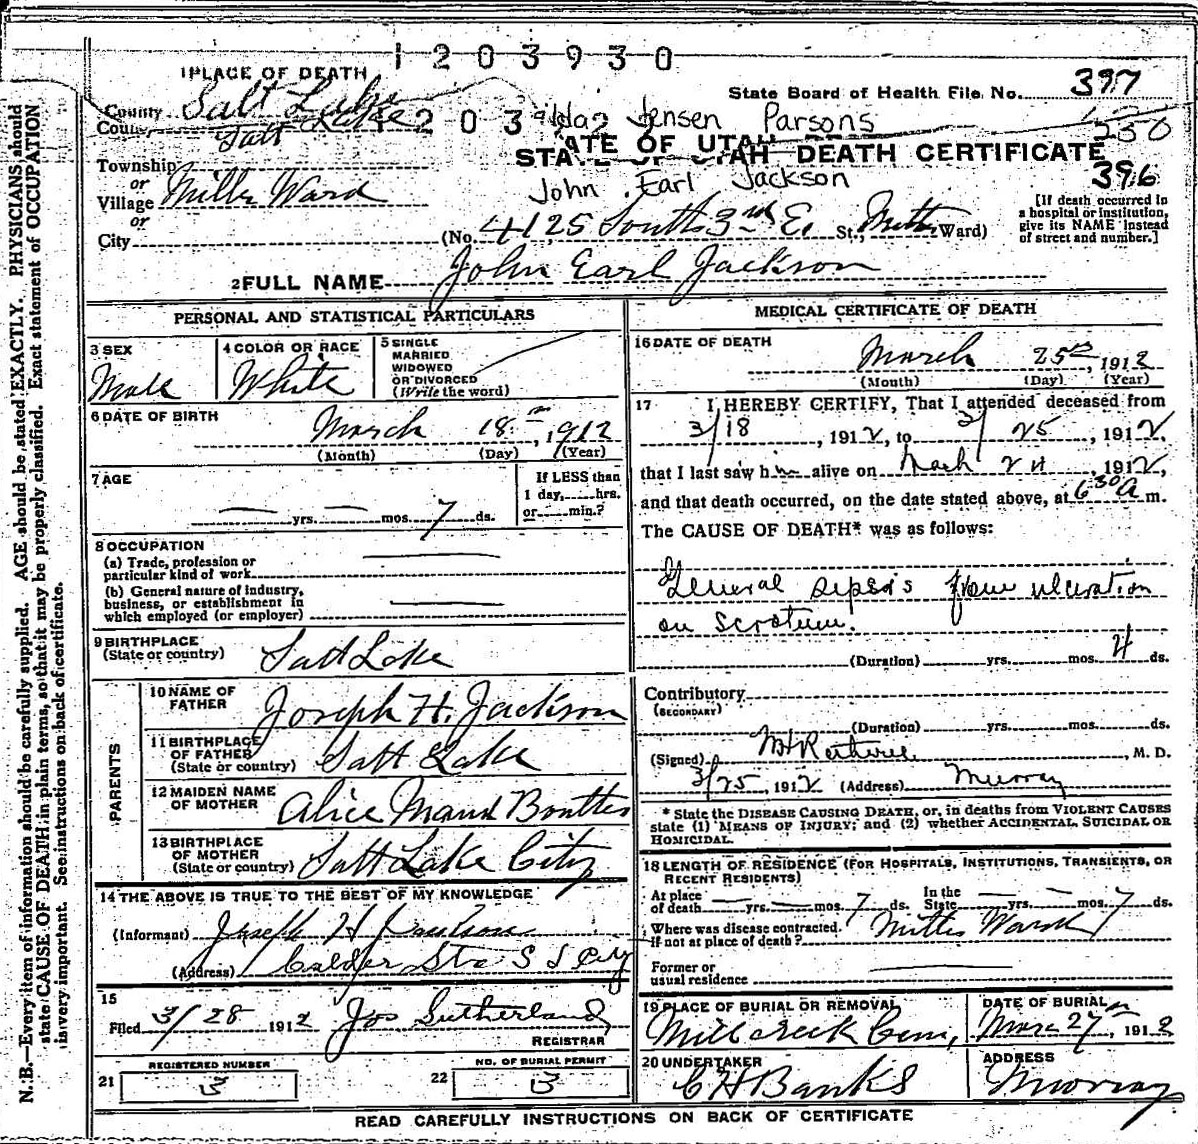 1203930
1 PLACE OF DEATH
State Board of Health File No. 397
County Salt Lake
County Salt Lake
1203
Jensen Parsons
230
STATE OF UTAH DEATH CERTIFICATE
John Earl Jackson
396
Township
or
Village Miller Ward
or
City
(No. 4125 South 3rd E. St., Ward)
[If death occurred in
a hospital or institution,
give its NAME instead
of street and number.]
2 FULL NAME John Earl Jackson
PERSONAL AND STATISTICAL PARTICULARS
3 SEX
Male
4 COLOR OR RACE
White
5 SINGLE
MARRIED
WIDOWED
OR DIVORCED
(Write the word)
6 DATE OF BIRTH
March 18th, 1912
(Month) (Day) (Year)
7 AGE
— yrs. — mos. 7 ds.
If LESS than
1 day, hrs.
or min.?
8 OCCUPATION
(a) Trade, profession or
particular kind of work
(b) General nature of industry,
business, or establishment in
which employed (or employer)
9 BIRTHPLACE
(State or country) Salt Lake
PARENTS
10 NAME OF
FATHER Joseph H. Jackson
11 BIRTHPLACE
OF FATHER
(State or country) Salt Lake
12 MAIDEN NAME
OF MOTHER Alice Maud
13 BIRTHPLACE
OF MOTHER
(State or country) Salt Lake City
14 THE ABOVE IS TRUE TO THE BEST OF MY KNOWLEDGE
(Informant) Joseph H Jackson
(Address) Calder Sta S L City
15
Filed 3/28 1912 Jos Sutherland
REGISTRAR
REGISTERED NUMBER
21 3
NO. OF BURIAL PERMIT
22 3
MEDICAL CERTIFICATE OF DEATH
16 DATE OF DEATH
March 25th, 1912
(Month) (Day) (Year)
17 I HEREBY CERTIFY, That I attended deceased from
3/18, 1912, to 3/25, 1912,
that I last saw him alive on March 24, 1912,
and that death occurred, on the date stated above, at 6 30 A m.
The CAUSE OF DEATH* was as follows:
General sepsis from ulceration
on scrotum.
(Duration) yrs. mos. 4 ds.
Contributory
(SECONDARY)
(Duration) yrs. mos. ds.
(Signed) M. D.
3/25, 1912 (Address) Murray
* State the DISEASE CAUSING DEATH, or, in deaths from VIOLENT CAUSES
state (1) MEANS OF INJURY; and (2) whether ACCIDENTAL, SUICIDAL OR
HOMICIDAL.
18 LENGTH OF RESIDENCE (FOR HOSPITALS, INSTITUTIONS, TRANSIENTS, OR
RECENT RESIDENTS)
At place
of death — yrs. — mos. 7 ds.
In the
State — yrs. — mos. 7 ds.
Where was disease contracted,
if not at place of death? Ward
Former or
usual residence
19 PLACE OF BURIAL OR REMOVAL
Mill creek Cem,
DATE OF BURIAL
Mar 27th, 1912
20 UNDERTAKER
C H Banks
ADDRESS
Murray
READ CAREFULLY INSTRUCTIONS ON BACK OF CERTIFICATE
N. B.—Every item of information should be carefully supplied. AGE should be stated EXACTLY. PHYSICIANS should
state CAUSE OF DEATH in plain terms, so that it may be properly classified. Exact statement of OCCUPATION
is very important. See instructions on back of certificate.